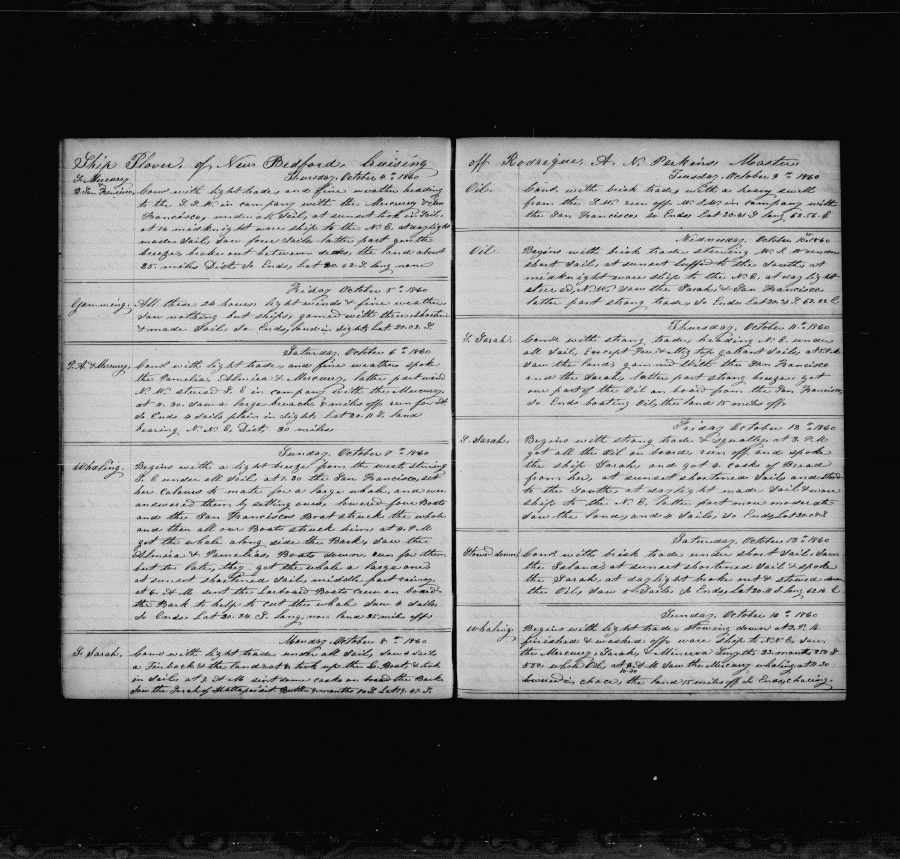 Ship Plover, of New Bedford, Cruising
S. Mercury Thursday, October 4th 1860
& San Francisco, Coms with light trade, and fine weather heading
to the S.S.W. in company with the Mercury & San
Francisco, under all Sail, at sunset took in Sail,
at 12 midknight ware ship to the N.E. at daylight
made Sail, saw four Sails latter part gentle
breeze, broke out between decks, the land about
25 miles Dist. So Ends, Lat 20.22 S. Long none
Friday October 5th 1860
Gamming, All these 24 hours light winds & fine weather
saw nothing but ships, gamed with them shorten
& made Sail So Ends, land in sight, Lat 20.02. S.
Saturday, October 6th 1860
P. A. & Mercury, Coms with light trade, and fine weather, spoke
the Pamelia, Almira & Mercury, latter part wind
N.W. steered S.E. in company with the Mercury,
at 11.30 saw a large breach, 8 miles off, run for it
So Ends 4 Sails plain in sight. Lat 20.11 S. land
bearing N.N.E. Dist. 30 miles.
Sunday, October 7th 1860
Whaling. Begins with a light breeze from the west, steering
S.E. under all Sail, at 1.30 the San Francisco, set
her Colours to mate for a large whale, and we
answered them by setting ours, lowered four Boats
and the San Franciscos Boat struck the whale
and then all our Boats struck him, at 4. P.M
got the whale along side the Bark, saw the
Almira & Pamelias, Boats down, run for them
but too late, they got the whale a large one
at sunset shortened Sail, middle part rainey
at 6. A.M sent the Larboard Boats Crew on board
the Bark to help to cut the whale saw 4 Sails
So Ends, Lat 20.24 S. Long, non land 25 miles off.
Monday, October 8th 1860
S. Sarah. Coms with light trade under all Sail, saw 4 Sails
a Finback & the land, at 2 took up the L. Boat, & took
in Sail, at 7 A.M sent some casks on board the Bark
Saw the Sarah of Mattapoisett Butler 9 months Lat 19.47 S.
off Rodrigue, A. N. Perkins Master
Tuesday, October 9th 1860
Oil. Coms. with brisk trade, with a heavy swell
from the S.W. run off W.S.W. in company with
the San Francisco So Ends, Lat 20.41 S Long 62.56. E
Wednesday, October 10th 1860
Oil. Begins with brisk trade, steering W.S.W. under
short Sail, at sunset luffed to the South, at
midknight ware ship to the N.E. at day light
steered N.N.W. saw the Sarah, & San Francisco
latter part strong trade, So Ends Lat 20.21 S 62.22 E
Thursday, October 11th 1860
S. Sarah. Coms with strong trade, heading N.E. under
all Sail, Except Fore & Miz top gallant Sails, at
saw the land, gammed with the San Francisco
and the Sarah, latter part strong breeze, got
our part of the Oil on board from the San Francisco
So Ends boating Oil, the land 15 miles off.
Friday October 12th 1860
S. Sarah. Begins with strong trade & squally, at 3. P.M
got all the Oil on board, run off and spoke
the ship Sarah, and got 2 casks of Bread
from her, at sunset shortened Sail, and stood
to the South, at day light made Sail & ware
ship to the N.E. latter part more moderate
saw the land, and 4 Sails, So Ends, Lat 20.08 S
Saturday, October 13th 1860
Stowed down Coms with brisk trade under short Sail, Saw
the Island, at sunset shortened Sail & spoke
the Sarah, at day light broke out & stowed down
the Oil, saw 5 Sails So Ends, Lat 20.11 S Long 62.10 E
Sunday, October 14th 1860
Whaling. Begins with light trade, stowing down, at 2. P.M
finished & washed off, ware ship to N.N.E. Saw
the Mercury, Sarah, & Minerva Smyths, 23. months 250 S
550, whale Oil, at A.M Saw the Mercury whaling, at 10.30
10.30
lowered in chace, the land 15 miles off So Ends, chacing.